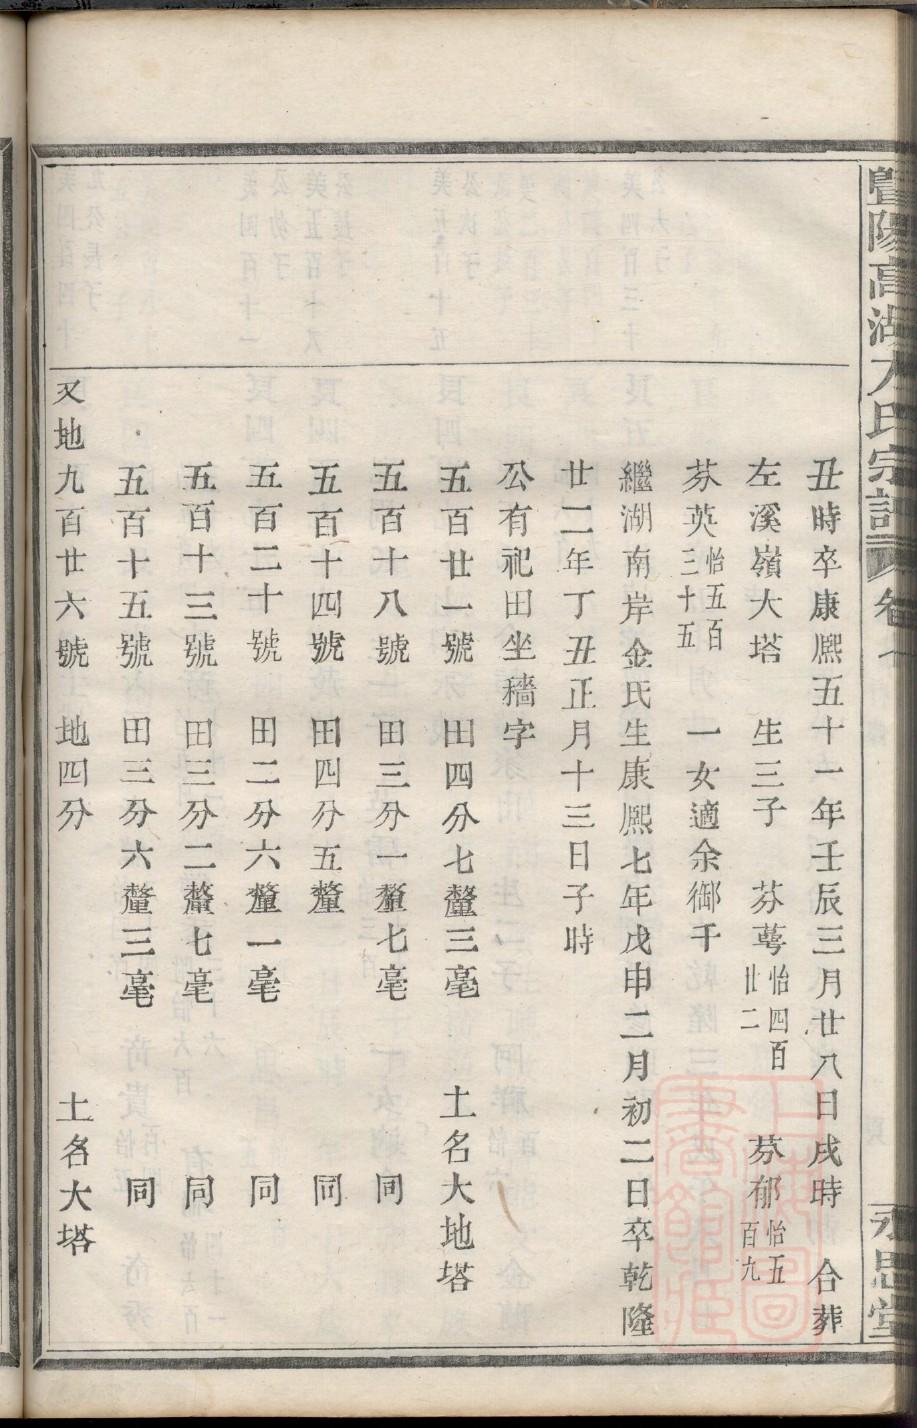 暨陽高湖方氏宗譜 卷
永思堂
丑時卒康熈五十一年壬辰三月廿八日戌時 合葬
左溪嶺大塔 生三子 芬蕚怡四百廿二 芬郁怡五百九
芬英怡五百三十五 一女適余御千
繼湖南岸金氏生康熈七年戊申二月初二日卒乾隆
廿二年丁丑正月十三日子時
公有祀田坐穡字
五百廿一號 田四分七釐三毫 土名大地塔
五百十八號 田三分一釐七毫 同
五百十四號 田四分五釐 同
五百二十號 田二分六釐一毫 同
五百十三號 田三分二釐七毫 同
五百十五號 田三分六釐三毫 同
又地九百廿六號 地四分 土名大塔